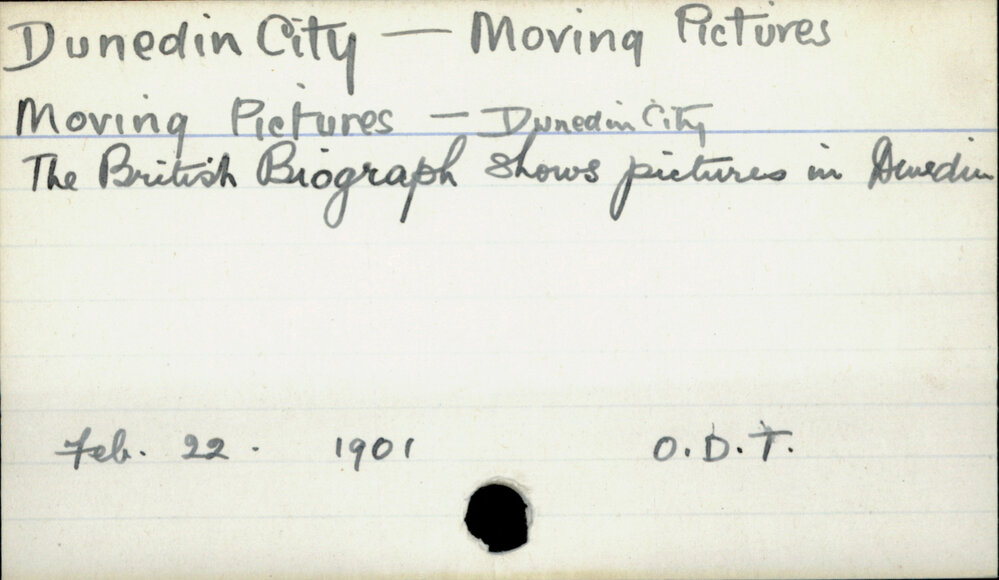 Dunedin City — Moving Pictures
Moving Pictures — Dunedin City
The British Biograph shows pictures in Dunedin
Feb. 22. 1901 O.D.T.